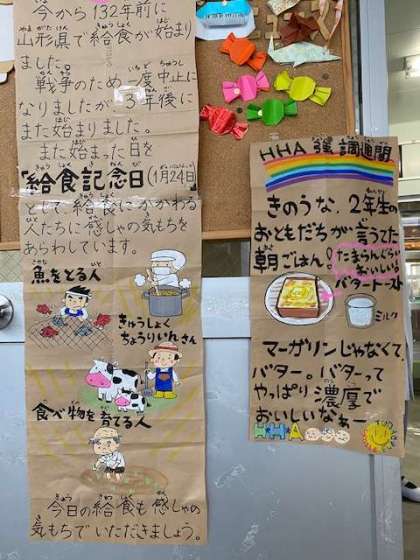 今から132年前に
山形県で給食が始まり
ました。
戦争のため一度中止に
なりましたが3年後に
また始まりました。
また始まった日を
「給食記念日(1月24日)」
として、給食にかかわる
人たちに感しゃの気もちを
あらわしています。
魚をとる人
きゅうしょく
ちょうりいんさん
食べ物を育てる人
今日の給食も感しゃの
気もちでいただきましょう。
HHA 強調週間
きのうな、2年生の
おともだちが言うてた
朝ごはん。
たまらんぐらい
おいしいな
バタートースト
ミルク
マーガリンじゃなくて、
バター。バターって
やっぱり濃厚で
おいしいなぁー
HHA